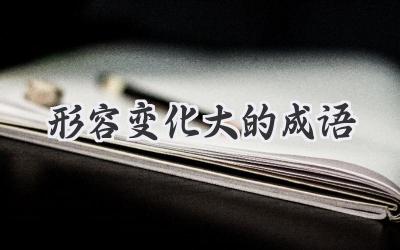 形容变化大的成语